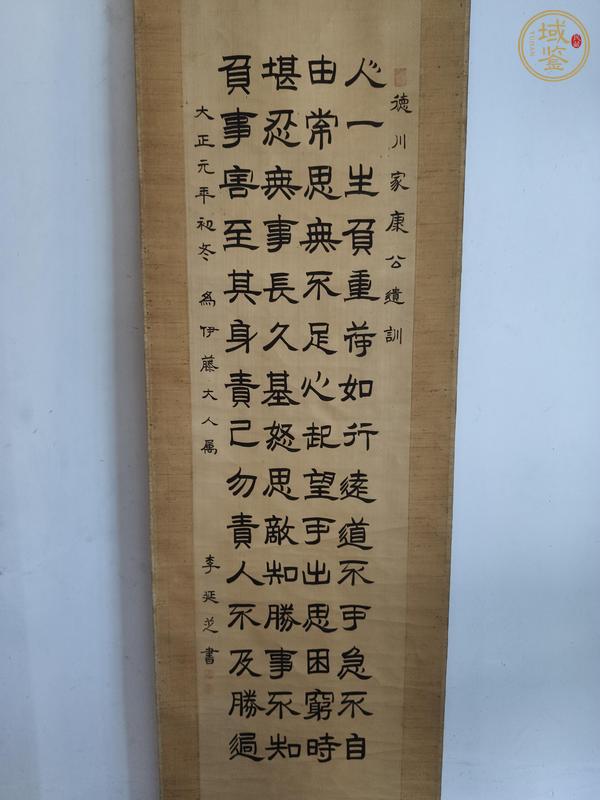 德川家康公遺訓
心一生負重荷如行遠道不乎急不自
由常思無不足心起望乎出思困窮時
堪忍無事長久基怒思敵知勝事不知
負事害至其身責己勿責人不及勝過
大正元年初冬 為伊藤大人属 李延芝書
域鉴